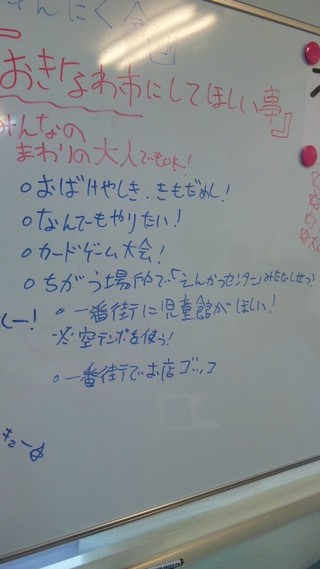 にく会』
おきなわ市にしてほしい事』
みんなの
まわりの大人でもOK!
○おばけやしき、きもだめし!
○なんでもやりたい!
○カードゲーム大会!
○ちがう場所で「えんかつセンター」みたなしせつ!
○一番街に児童館がほしい!
※空テンポを使う!
○一番街でお店ゴッコ